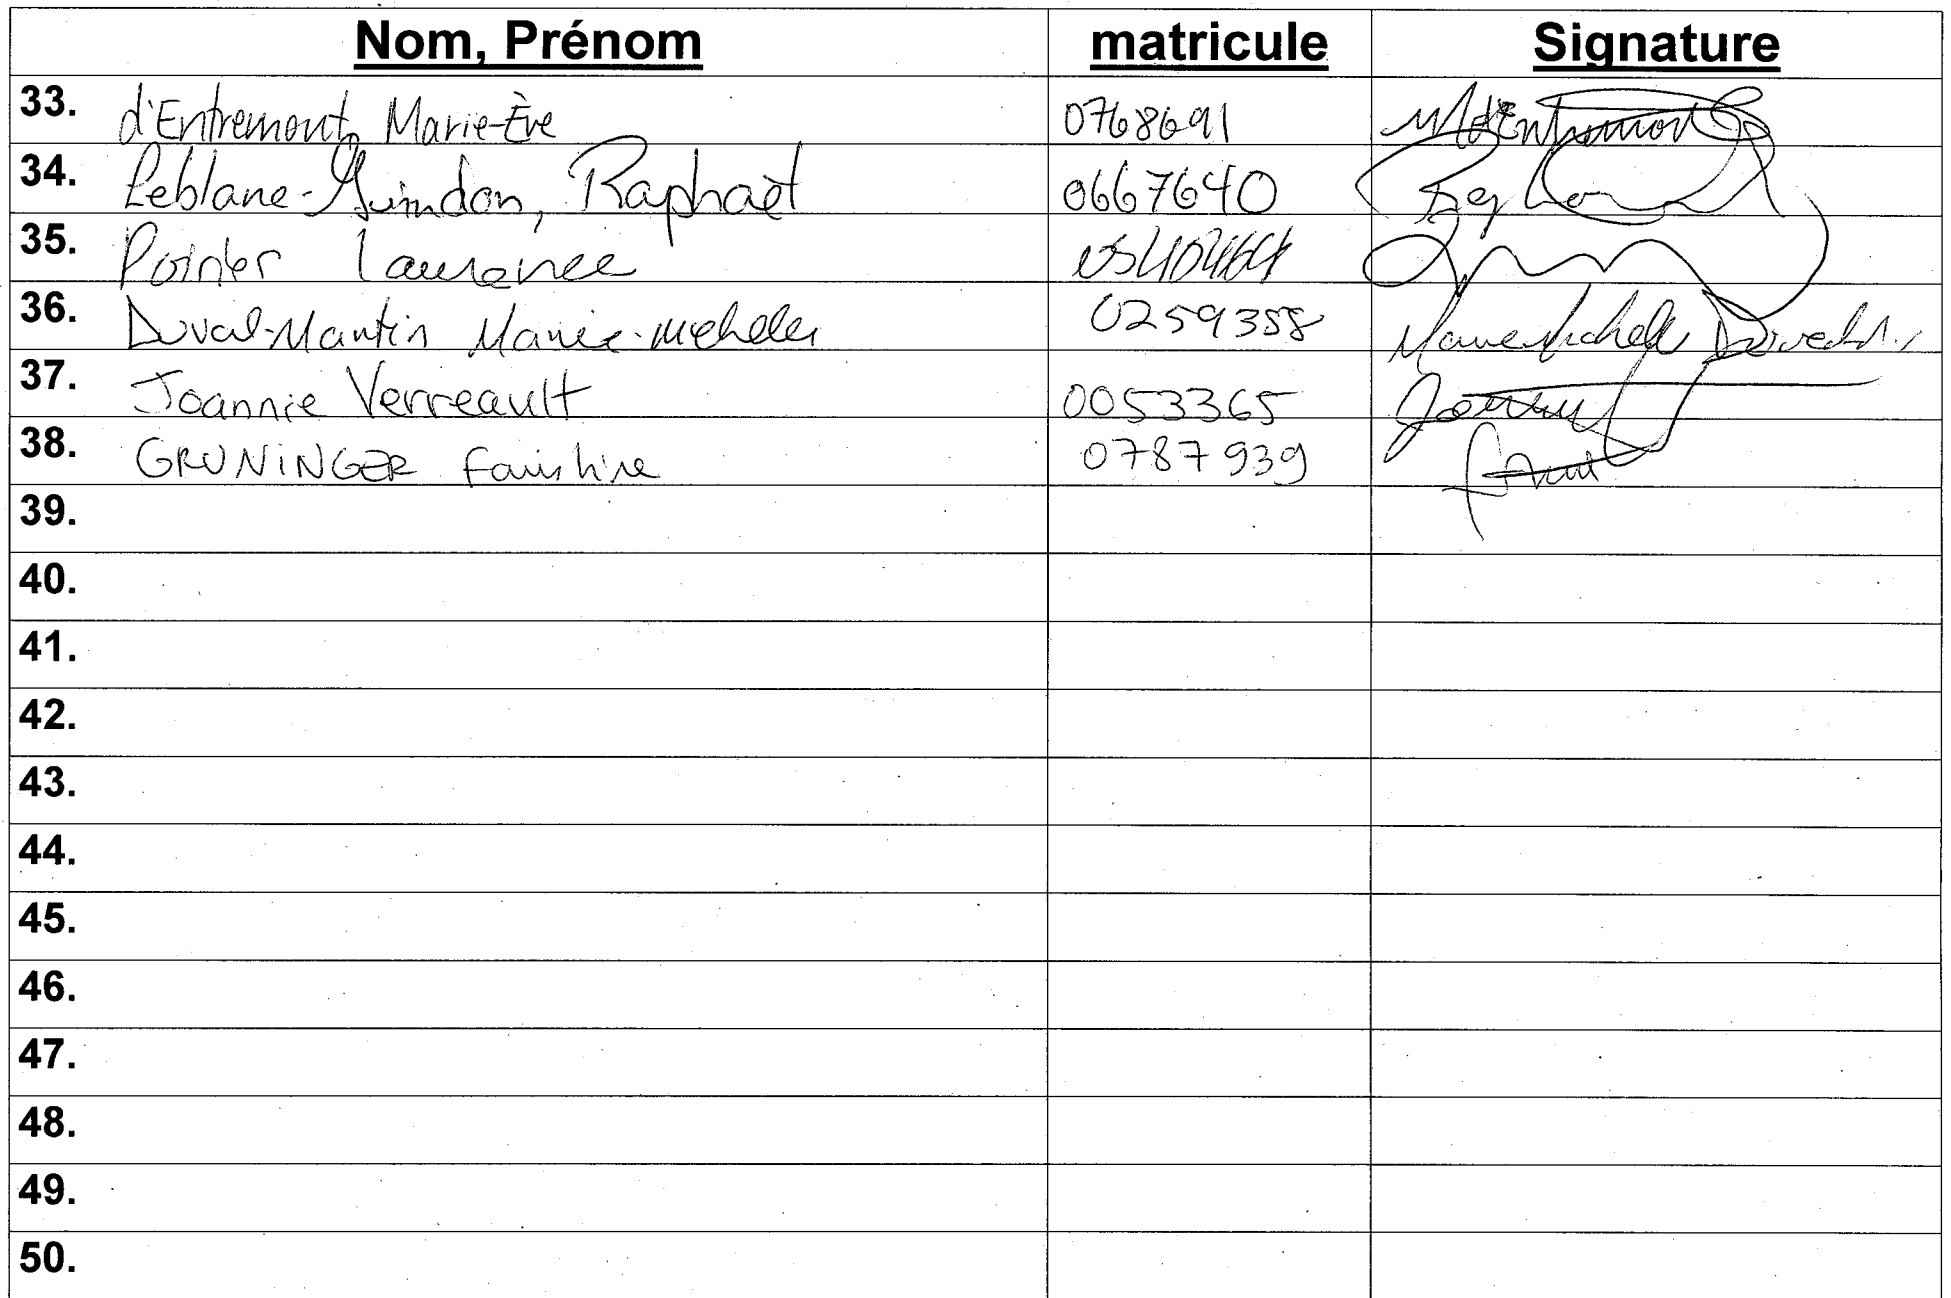 Nom, Prénom matricule Signature
33. d'Entremont, Marie-Ève 0768691
34. Leblanc-Guindon, Raphaël 0667640
35. Poirier Laurence
36. Duval-Martin Marie-Michèle 0259358
37. Joannie Verreault 0053365
38. GRUNINGER Faustine 0787939
39.
40.
41.
42.
43.
44.
45.
46.
47.
48.
49.
50.